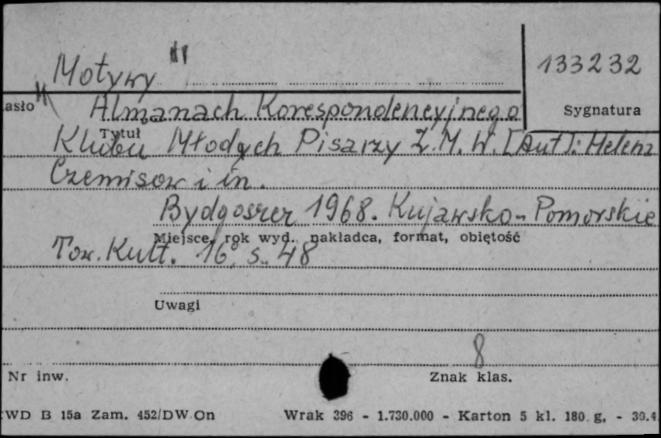 Motywy
133232
asło
Sygnatura
Almanach Korespondencyjnego
Tytuł
Klubu Młodych Pisarzy Z.M.W. [Aut]: Helena
i in.
Bydgoszcz 1968. Kujawsko-Pomorskie
Miejsce, rok wyd., nakładca, format, objętość
Tow. Kult. 16, s. 48
Uwagi
8
Nr inw.
Znak klas.
WD B 15a Zam. 452/DW On Wrak 396 - 1.730.000 - Karton 5 kl. 180 g, - 30.4